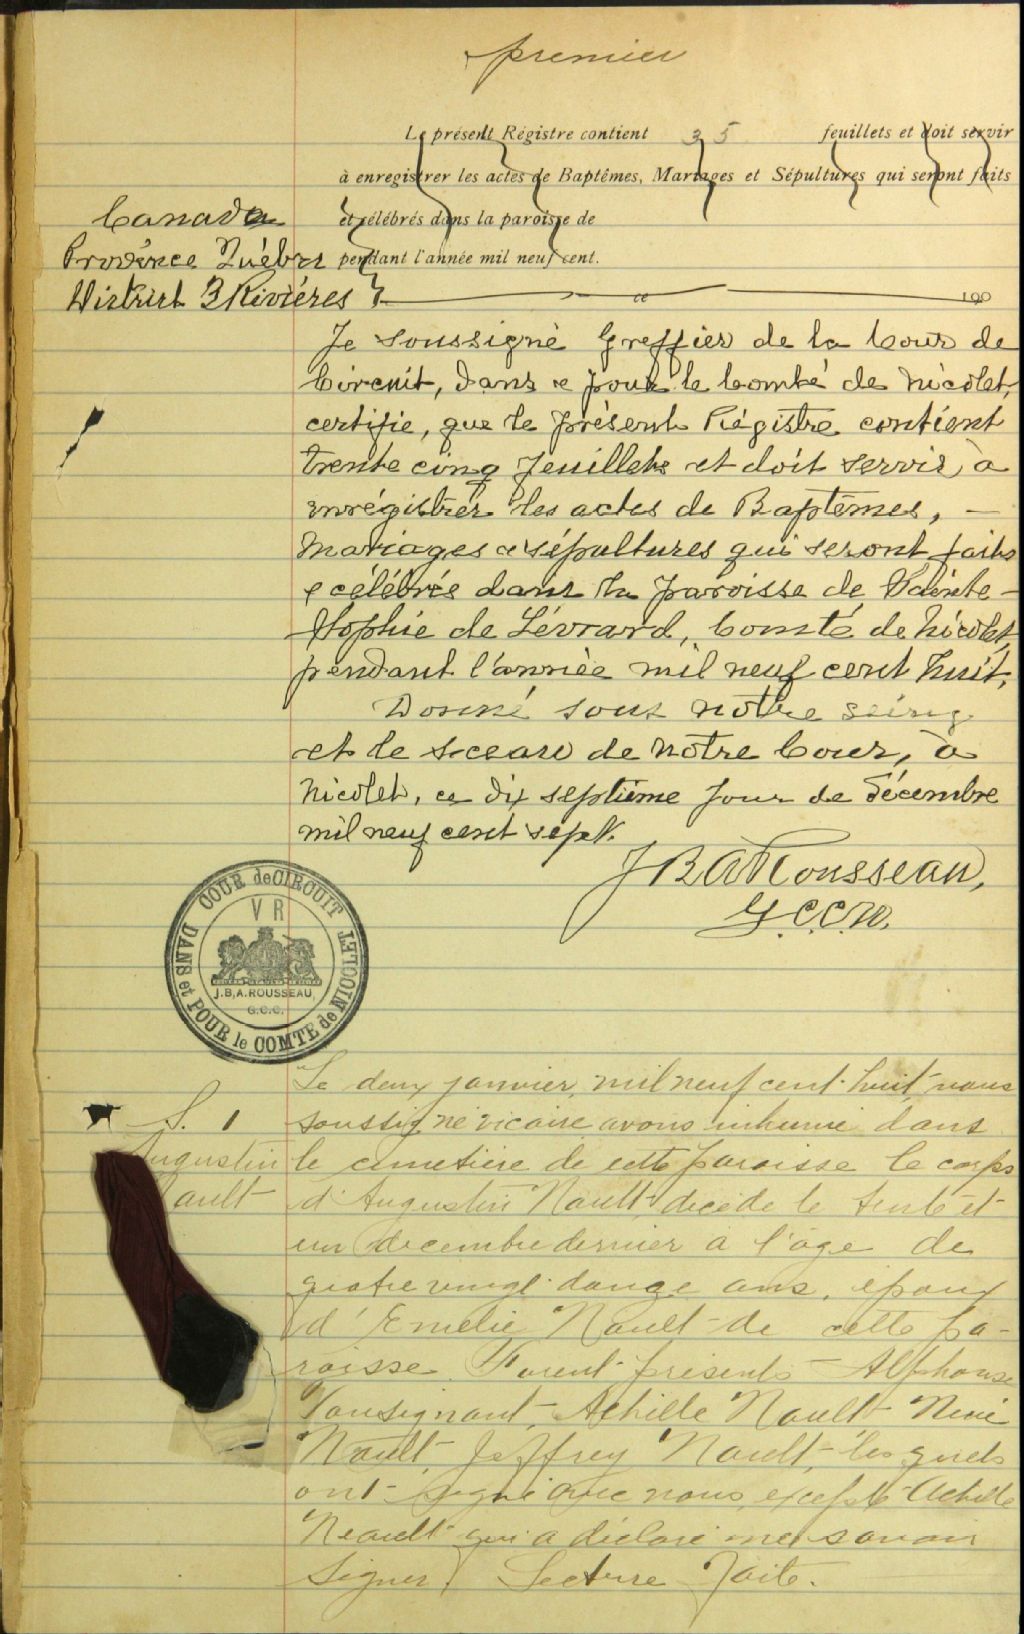 premier
Le présent Régistre contient 35 feuillets et doit servir
à enregistrer les actes de Baptêmes, Mariages et Sépultures qui seront faits
et célébrés dans la paroisse de
pendant l'année mil neuf cent.
ce 190
Canada
Province Québec
District 3 Rivières
Je soussigné Greffier de la Cour de
Circuit, dans & pour le Comté de Nicolet,
certifie, que le présent Régistre contient
trente cinq feuillets et doit servir à
enrégistrer les actes de Baptêmes, —
Mariages & sépultures qui seront faits
& célébrés dans la paroisse de Sainte-
Sophie de Lévrard, Comté de Nicolet,
pendant l'année mil neuf cent huit.
Donné sous notre seing
et le sceau de notre Cour, à
Nicolet, ce dix septième jour de décembre
mil neuf cent sept.
J B A Rousseau,
G.C.C.N.
COUR de CIRCUIT
DANS et POUR le COMTE de NICOLET
V R
J.B.A. ROUSSEAU
G.C.C.
S. 1
Augustin
ault
Le deux janvier, mil neuf cent huit, nous
soussigné vicaire avons inhumé dans
le cimetière de cette paroisse le corps
d'Augustin Nault, décédé le trente et
un décembre dernier à l'âge de
quatre vingt douze ans, époux
d'Emélie Nault de cette pa-
roisse. Furent présents Alphonse
Tousignant, Achille Nault
Nault, Jeffrey Nault, lesquels
ont signé avec nous, excepté Achille
Neault qui a déclaré ne savoir
signer. Lecture faite.